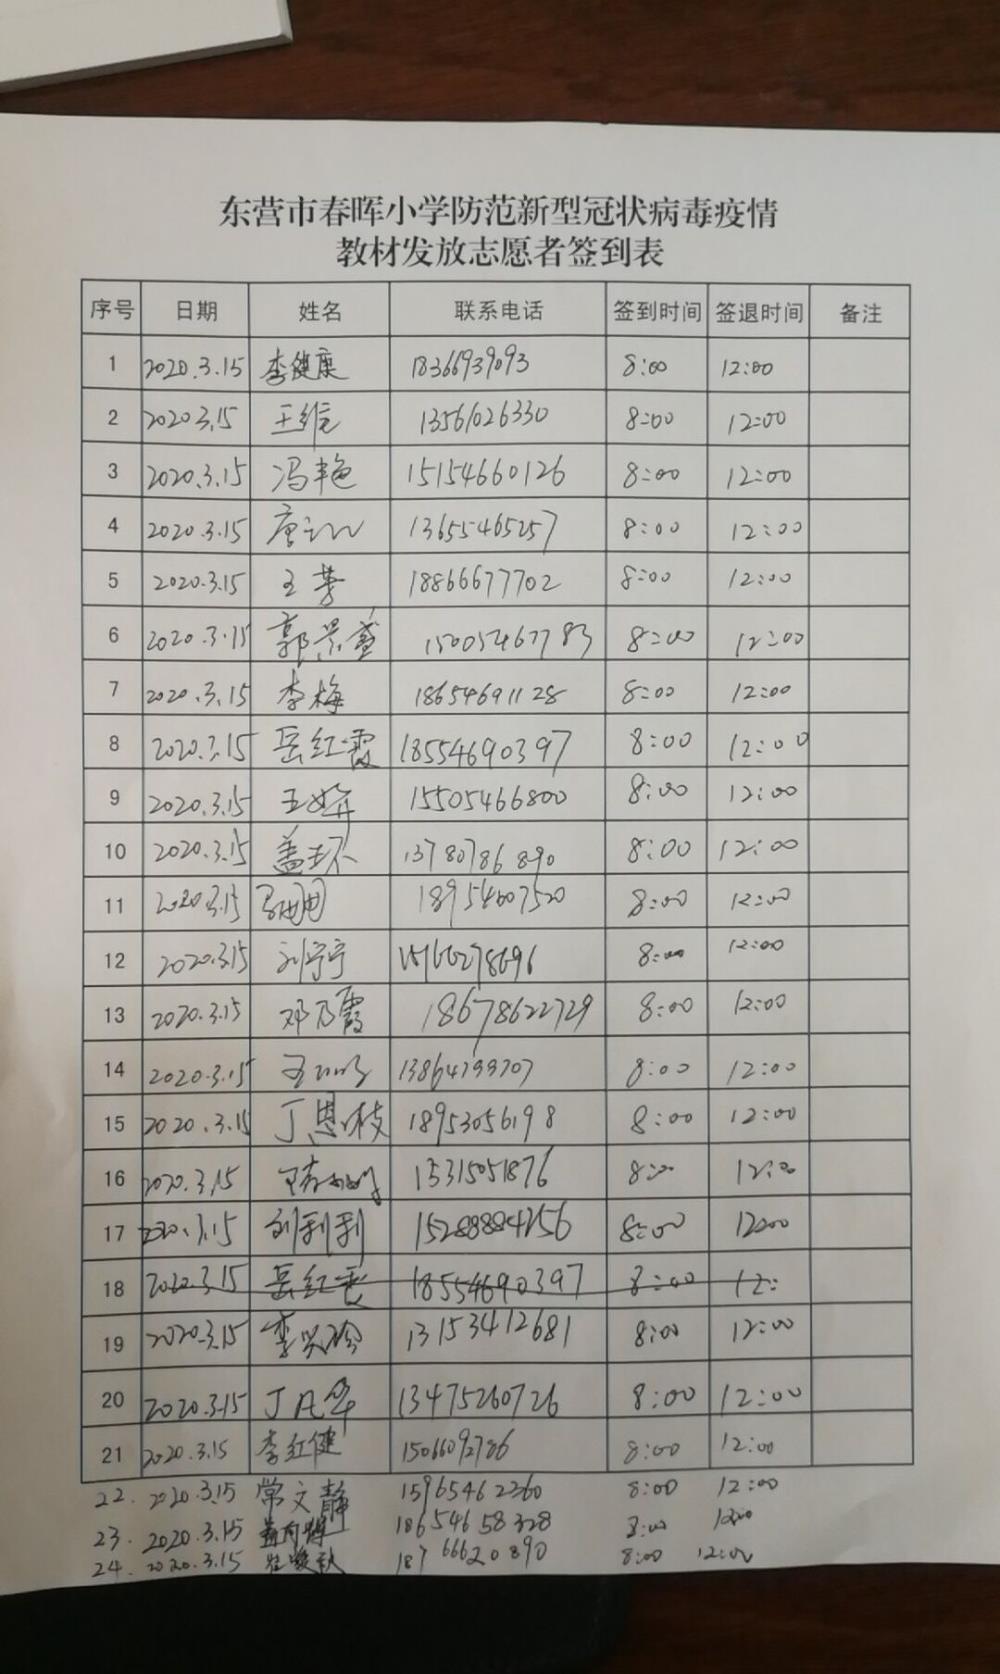 东营市春晖小学防范新型冠状病毒疫情
教材发放志愿者签到表
序号 日期 姓名 联系电话 签到时间 签退时间 备注
1 2020.3.15 李健康 18366939093 8:00 12:00
2 2020 3.15 王维 13561026330 8:00 12:00
3 2020.3.15 冯艳 15154660126 8:00 12:00
4 2020.3.15 13655465257 8:00 12:00
5 2020.3.15 王芳 18866677702 8:00 12:00
6 2020.3.15 郭景盛 15005467783 8:00 12:00
7 2020.3.15 李梅 18654691128 8:00 12:00
8 2020.3.15 岳红霞 18554690397 8:00 12:00
9 2020.3.15 王婷 15505466800 8:00 12:00
10 2020.3.15 盖环 13780786890 8:00 12:00
11 2020 3.15 18954607520 8:00 12:00
12 2020.3.15 刘宁宁 15166278696 8:00 12:00
13 2020.3.15 邓乃霞 18678622729 8:00 12:00
14 2020.3.15 8:00 12:00
15 2020.3.15 丁恩枝 18953056198 8:00 12:00
16 2020.3.15 15315051876 8:00 12:00
17 2020.3.15 刘利利 15288884256 8:00 12:00
18 2020.3.15 岳红霞 18554690397 8:00 12:
19 2020.3.15 李兴玲 13153412681 8:00 12:00
20 2020.3.15 丁凡华 13475260726 8:00 12:00
21 2020.3.15 李红健 15066092786 8:00 12:00
22. 2020.3.15 常文静 15965462360 8:00 12:00
23. 2020.3.15 18654658328 8:00 12:00
24. 2020.3.15 18766620890 8:00 12:00